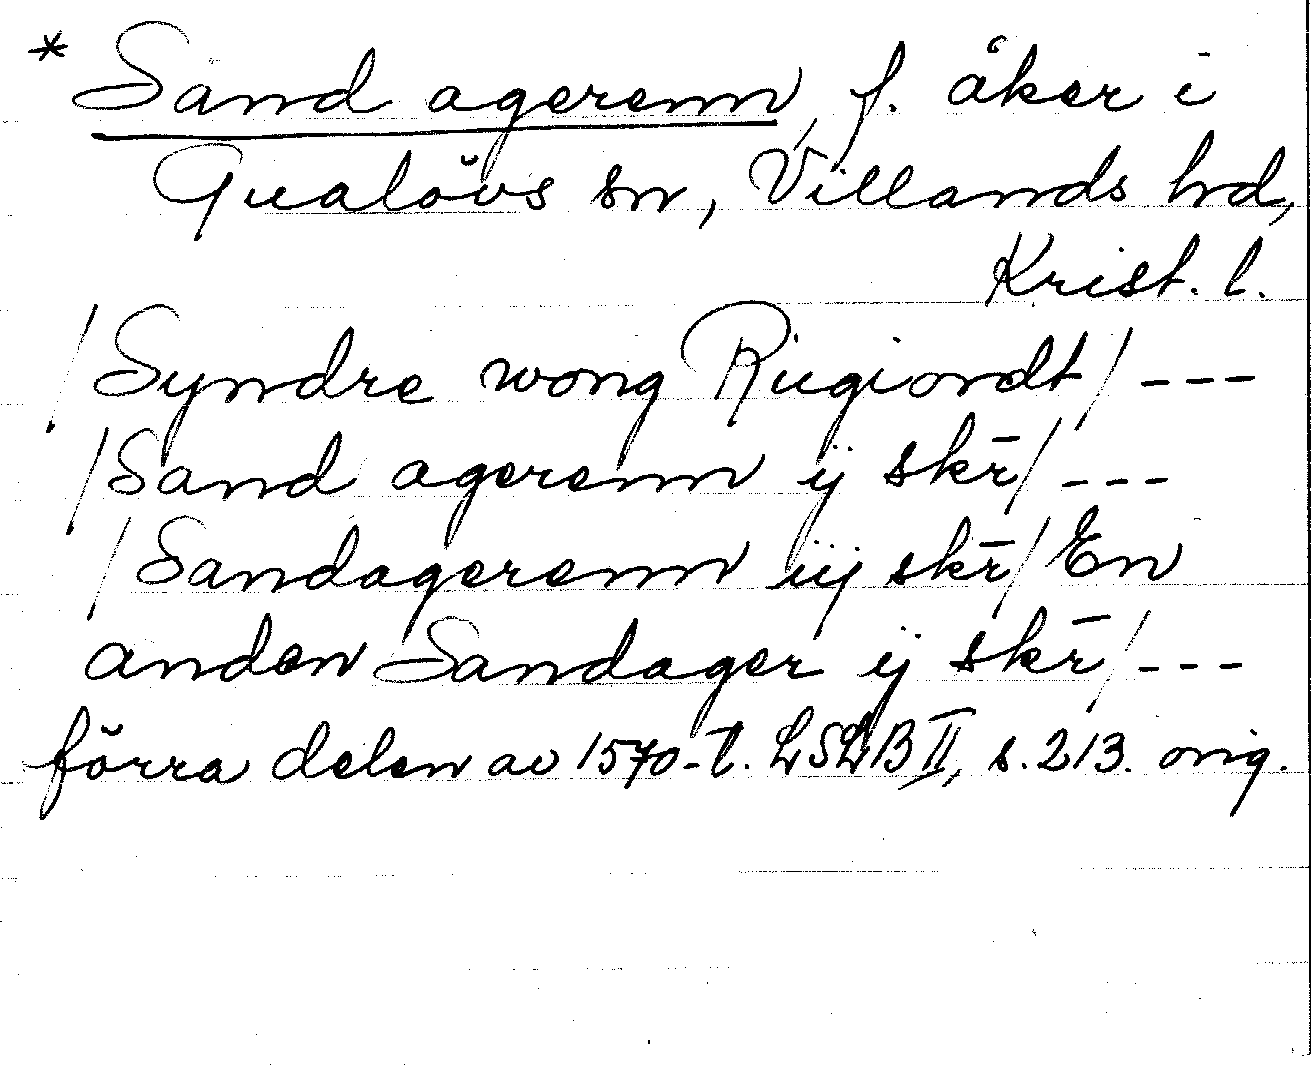 * Sand agerenn, f. åker i
Gualövs sn, Villands hd,
Krist. l.
/Syndre wong Rugiordt/ ---
/Sand agerenn ij skr̄/ ---
/Sandagerenn iij skr̄/ En
anden Sandager ij skr̄/ ---
förra delen av 1570-t. LSLB II, s. 213. orig.